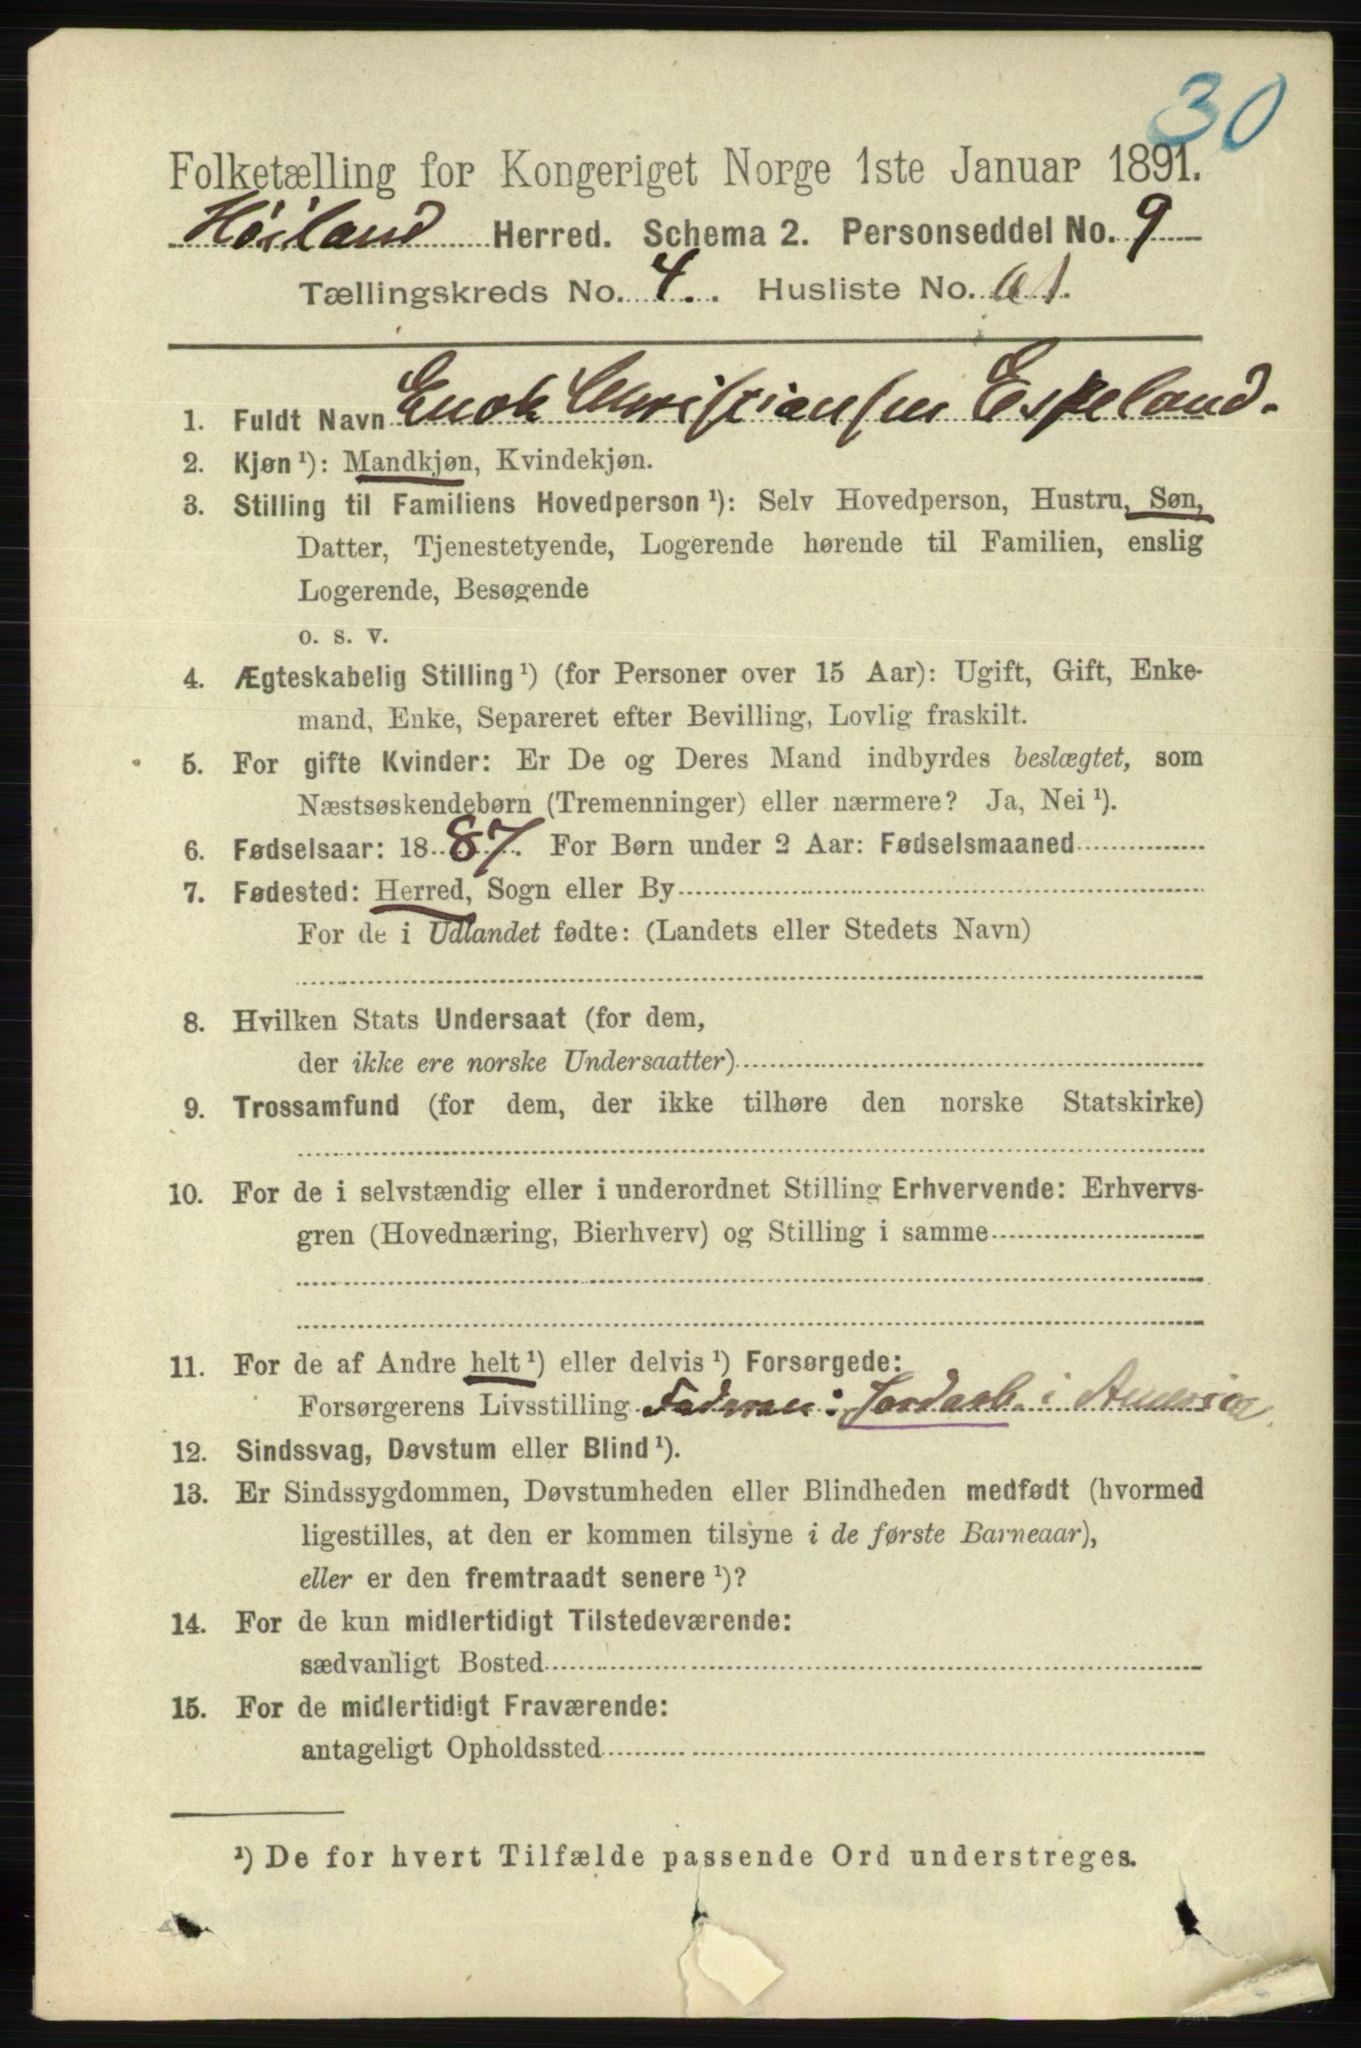 30
Folketælling for Kongeriget Norge 1ste Januar 1891.
Höiland Herred. Schema 2. Personseddel No. 9
Tællingskreds No. 4. Husliste No. 61.
1. Fuldt Navn Enok Christiansen Espeland.
2. Kjøn ¹): Mandkjøn, Kvindekjøn.
3. Stilling til Familiens Hovedperson ¹): Selv Hovedperson, Hustru, Søn,
Datter, Tjenestetyende, Logerende hørende til Familien, enslig
Logerende, Besøgende
o. s. v.
4. Ægteskabelig Stilling ¹) (for Personer over 15 Aar): Ugift, Gift, Enke-
mand, Enke, Separeret efter Bevilling, Lovlig fraskilt.
5. For gifte Kvinder: Er De og Deres Mand indbyrdes beslægtet, som
Næstsøskendebørn (Tremenninger) eller nærmere? Ja, Nei ¹).
6. Fødselsaar: 1887. For Børn under 2 Aar: Fødselsmaaned
7. Fødested: Herred, Sogn eller By
For de i Udlandet fødte: (Landets eller Stedets Navn)
8. Hvilken Stats Undersaat (for dem,
der ikke ere norske Undersaatter)
9. Trossamfund (for dem, der ikke tilhøre den norske Statskirke)
10. For de i selvstændig eller i underordnet Stilling Erhvervende: Erhvervs-
gren (Hovednæring, Bierhverv) og Stilling i samme
11. For de af Andre helt ¹) eller delvis ¹) Forsørgede:
Forsørgerens Livsstilling Faderen: Jordarb. i America
12. Sindssvag, Døvstum eller Blind ¹).
13. Er Sindssygdommen, Døvstumheden eller Blindheden medfødt (hvormed
ligestilles, at den er kommen tilsyne i de første Barneaar),
eller er den fremtraadt senere ¹)?
14. For de kun midlertidigt Tilstedeværende:
sædvanligt Bosted
15. For de midlertidigt Fraværende:
antageligt Opholdssted
¹) De for hvert Tilfælde passende Ord understreges.